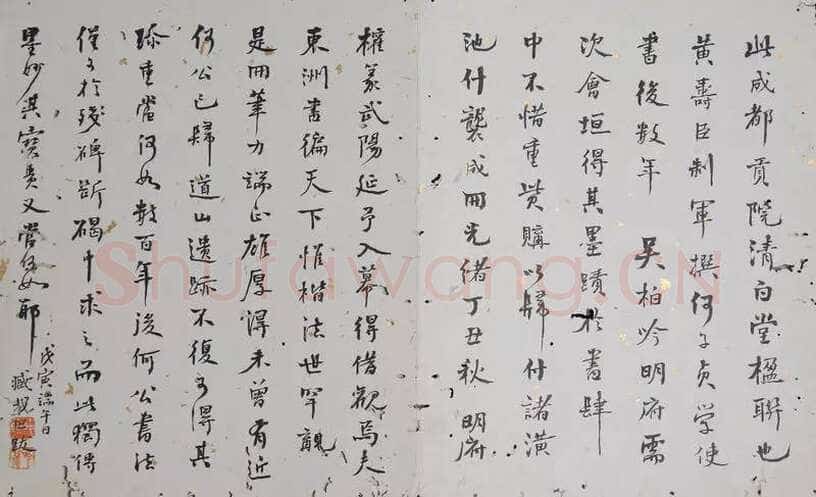 此成都貢院清白堂楹聯也
黃壽臣制軍撰何子貞學使
書後數年 吳柏吟明府需
次會垣得其墨蹟於書肆
中不惜重貲購以歸付諸潢
池什襲成冊光緒丁丑秋 明府
權篆武陽延予入幕得借觀焉夫
東洲書徧天下惟楷法世罕覯
是冊筆力端正雄厚得未曾有近
何公已歸道山遺跡不復可得其
珍重當何如數百年後何公書法
僅可於殘碑斷碣中求之而此獨傳
墨妙其寶貴又當何如耶
戊寅端午日
跋
Shufawang.CN